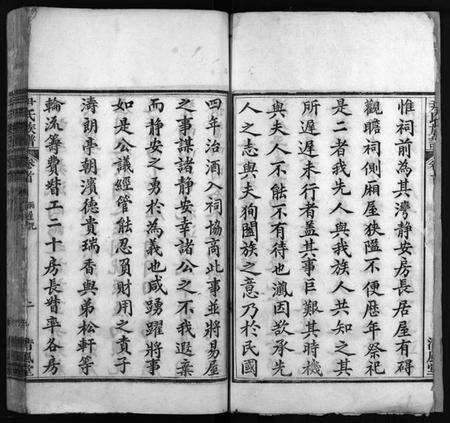 惟祠前為其灣靜安房長居屋有碍
觀瞻祠側廂屋狹隘不便歷年祭祀
是二者我先人與我族人共知之其
所遲遲未行者蓋其事巨艱其時機
與夫人不能不有待也瀛因欲承先
人之志與夫狥闔族之意乃於民國
四年治酒入祠協商此事並將易屋
之事謀諸靜安幸諸公之不我遐棄
而靜安之勇於為義也咸踴躍將事
如是公議經管能忍負財用之責子
濤朗亭朝濱德貴瑞香與弟松軒等
輪流籌費督工二十房長督率各房
尹氏族譜 卷首
二 清風堂